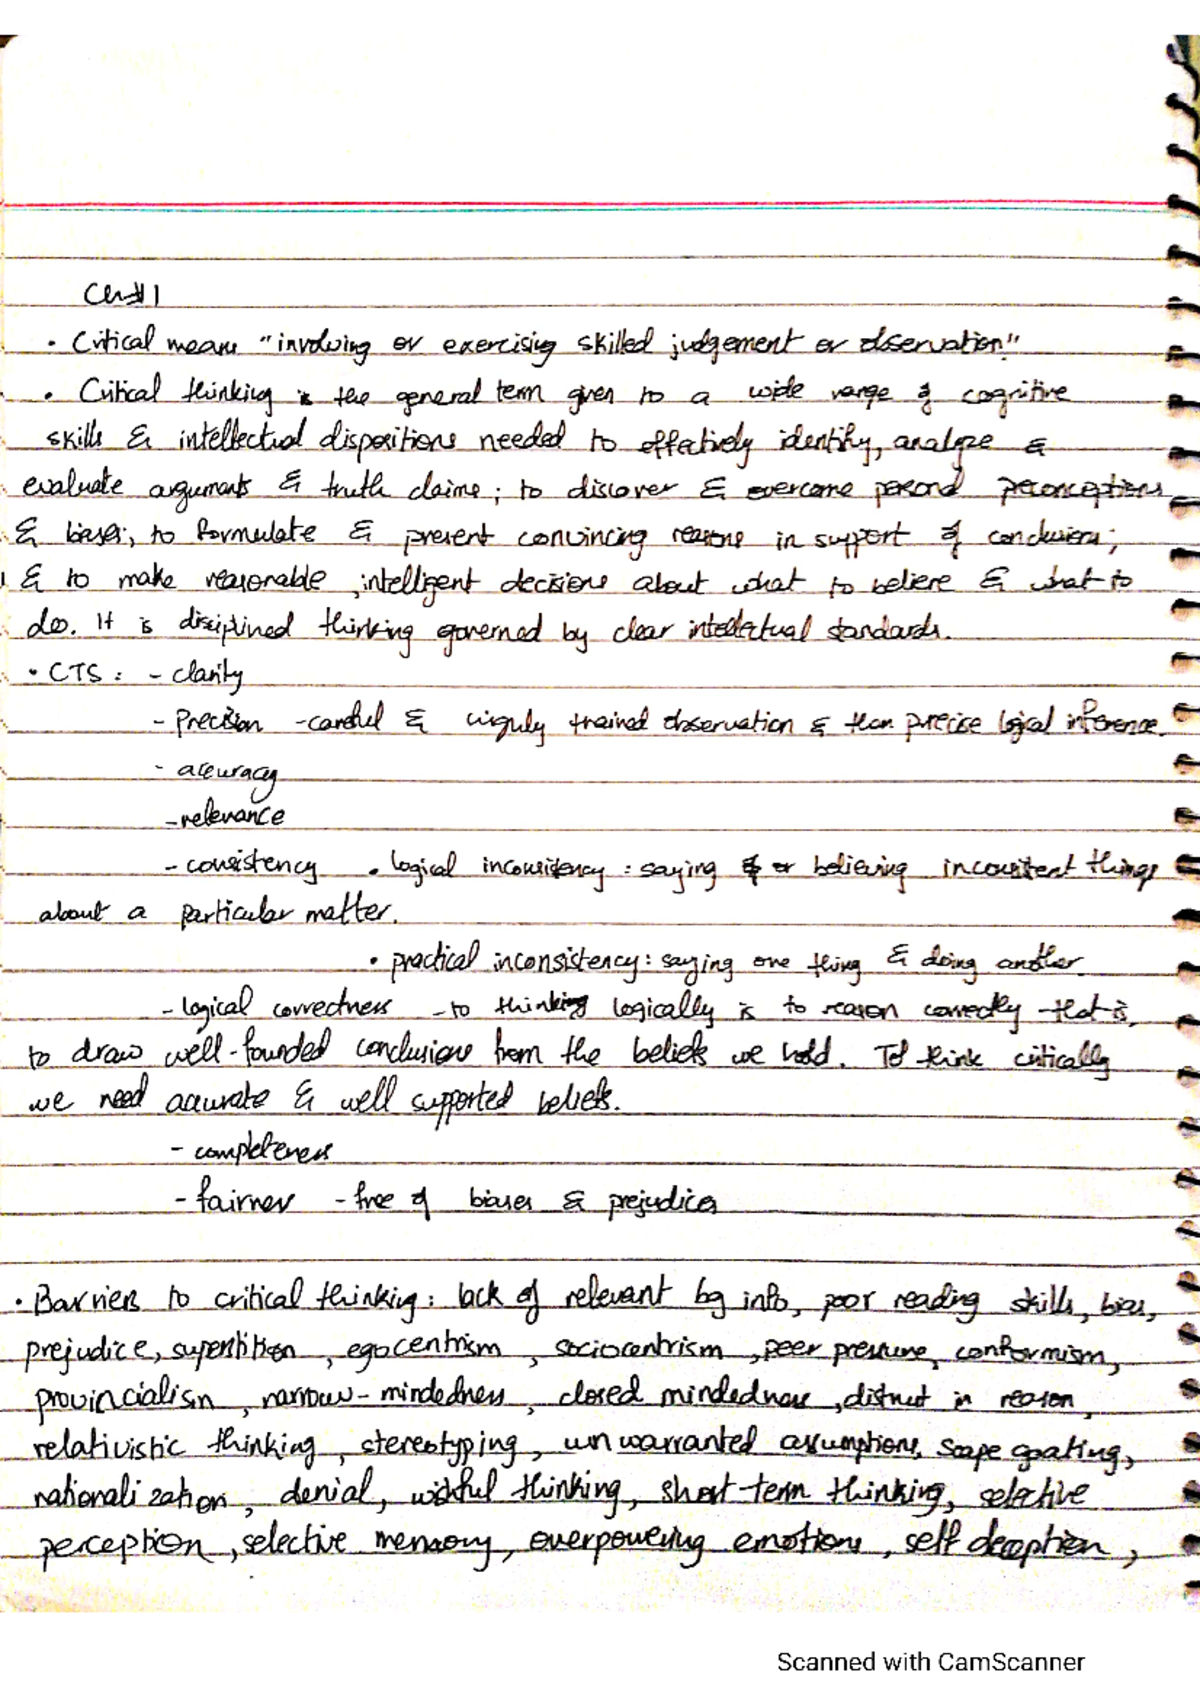 Ch#1
• Critical means "involving or exercising skilled judgement or observation"
• Critical thinking is the general term given to a wide range of cognitive
skills & intellectual dispositions needed to effectively identify, analyze &
evaluate arguments & truth claims; to discover & overcome personal preconceptions
& biases; to formulate & present convincing reasons in support of conclusions;
& to make reasonable, intelligent decisions about what to believe & what to
do. It is disciplined thinking governed by clear intellectual standards.
• CTS: - clarity
- Precision - careful & trained observation & then precise logical inference.
- accuracy
- relevance
- consistency • logical inconsistency: saying or believing inconsistent things
about a particular matter.
• practical inconsistency: saying one thing & doing another.
- logical correctness - to thinking logically is to reason correctly - that is,
to draw well-founded conclusions from the beliefs we hold. To think critically
we need accurate & well supported beliefs.
- completeness
- fairness - free of biases & prejudices
• Barriers to critical thinking: lack of relevant bg info, poor reading skills, bias,
prejudice, superstition, egocentrism, sociocentrism, peer pressure, conformism,
provincialism, narrow-mindedness, closed mindedness, distrust in reason,
relativistic thinking, stereotyping, unwarranted assumptions, scape goating,
rationalization, denial, wishful thinking, short-term thinking, selective
perception, selective memory, overpowering emotions, self deception,
Scanned with CamScanner